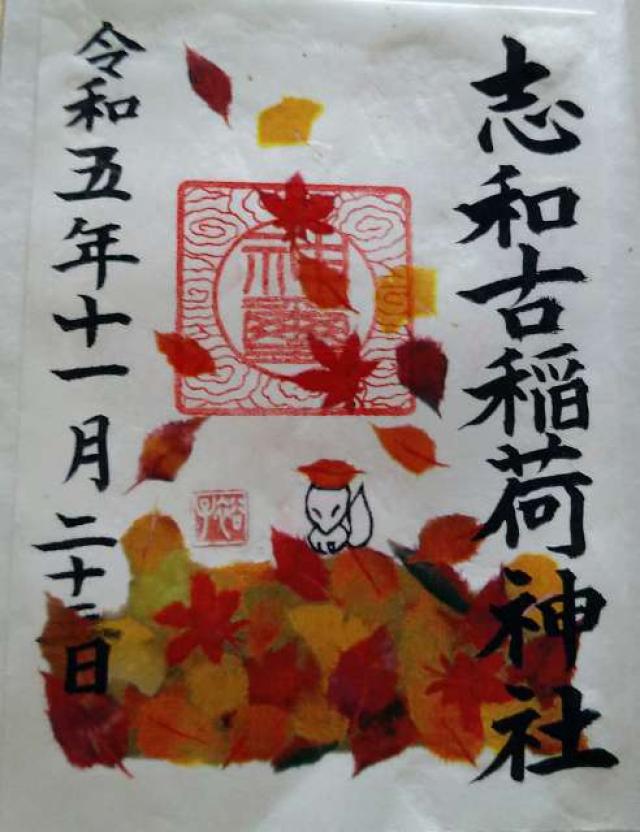 志和古稲荷神社
令和五年十一月二十三日